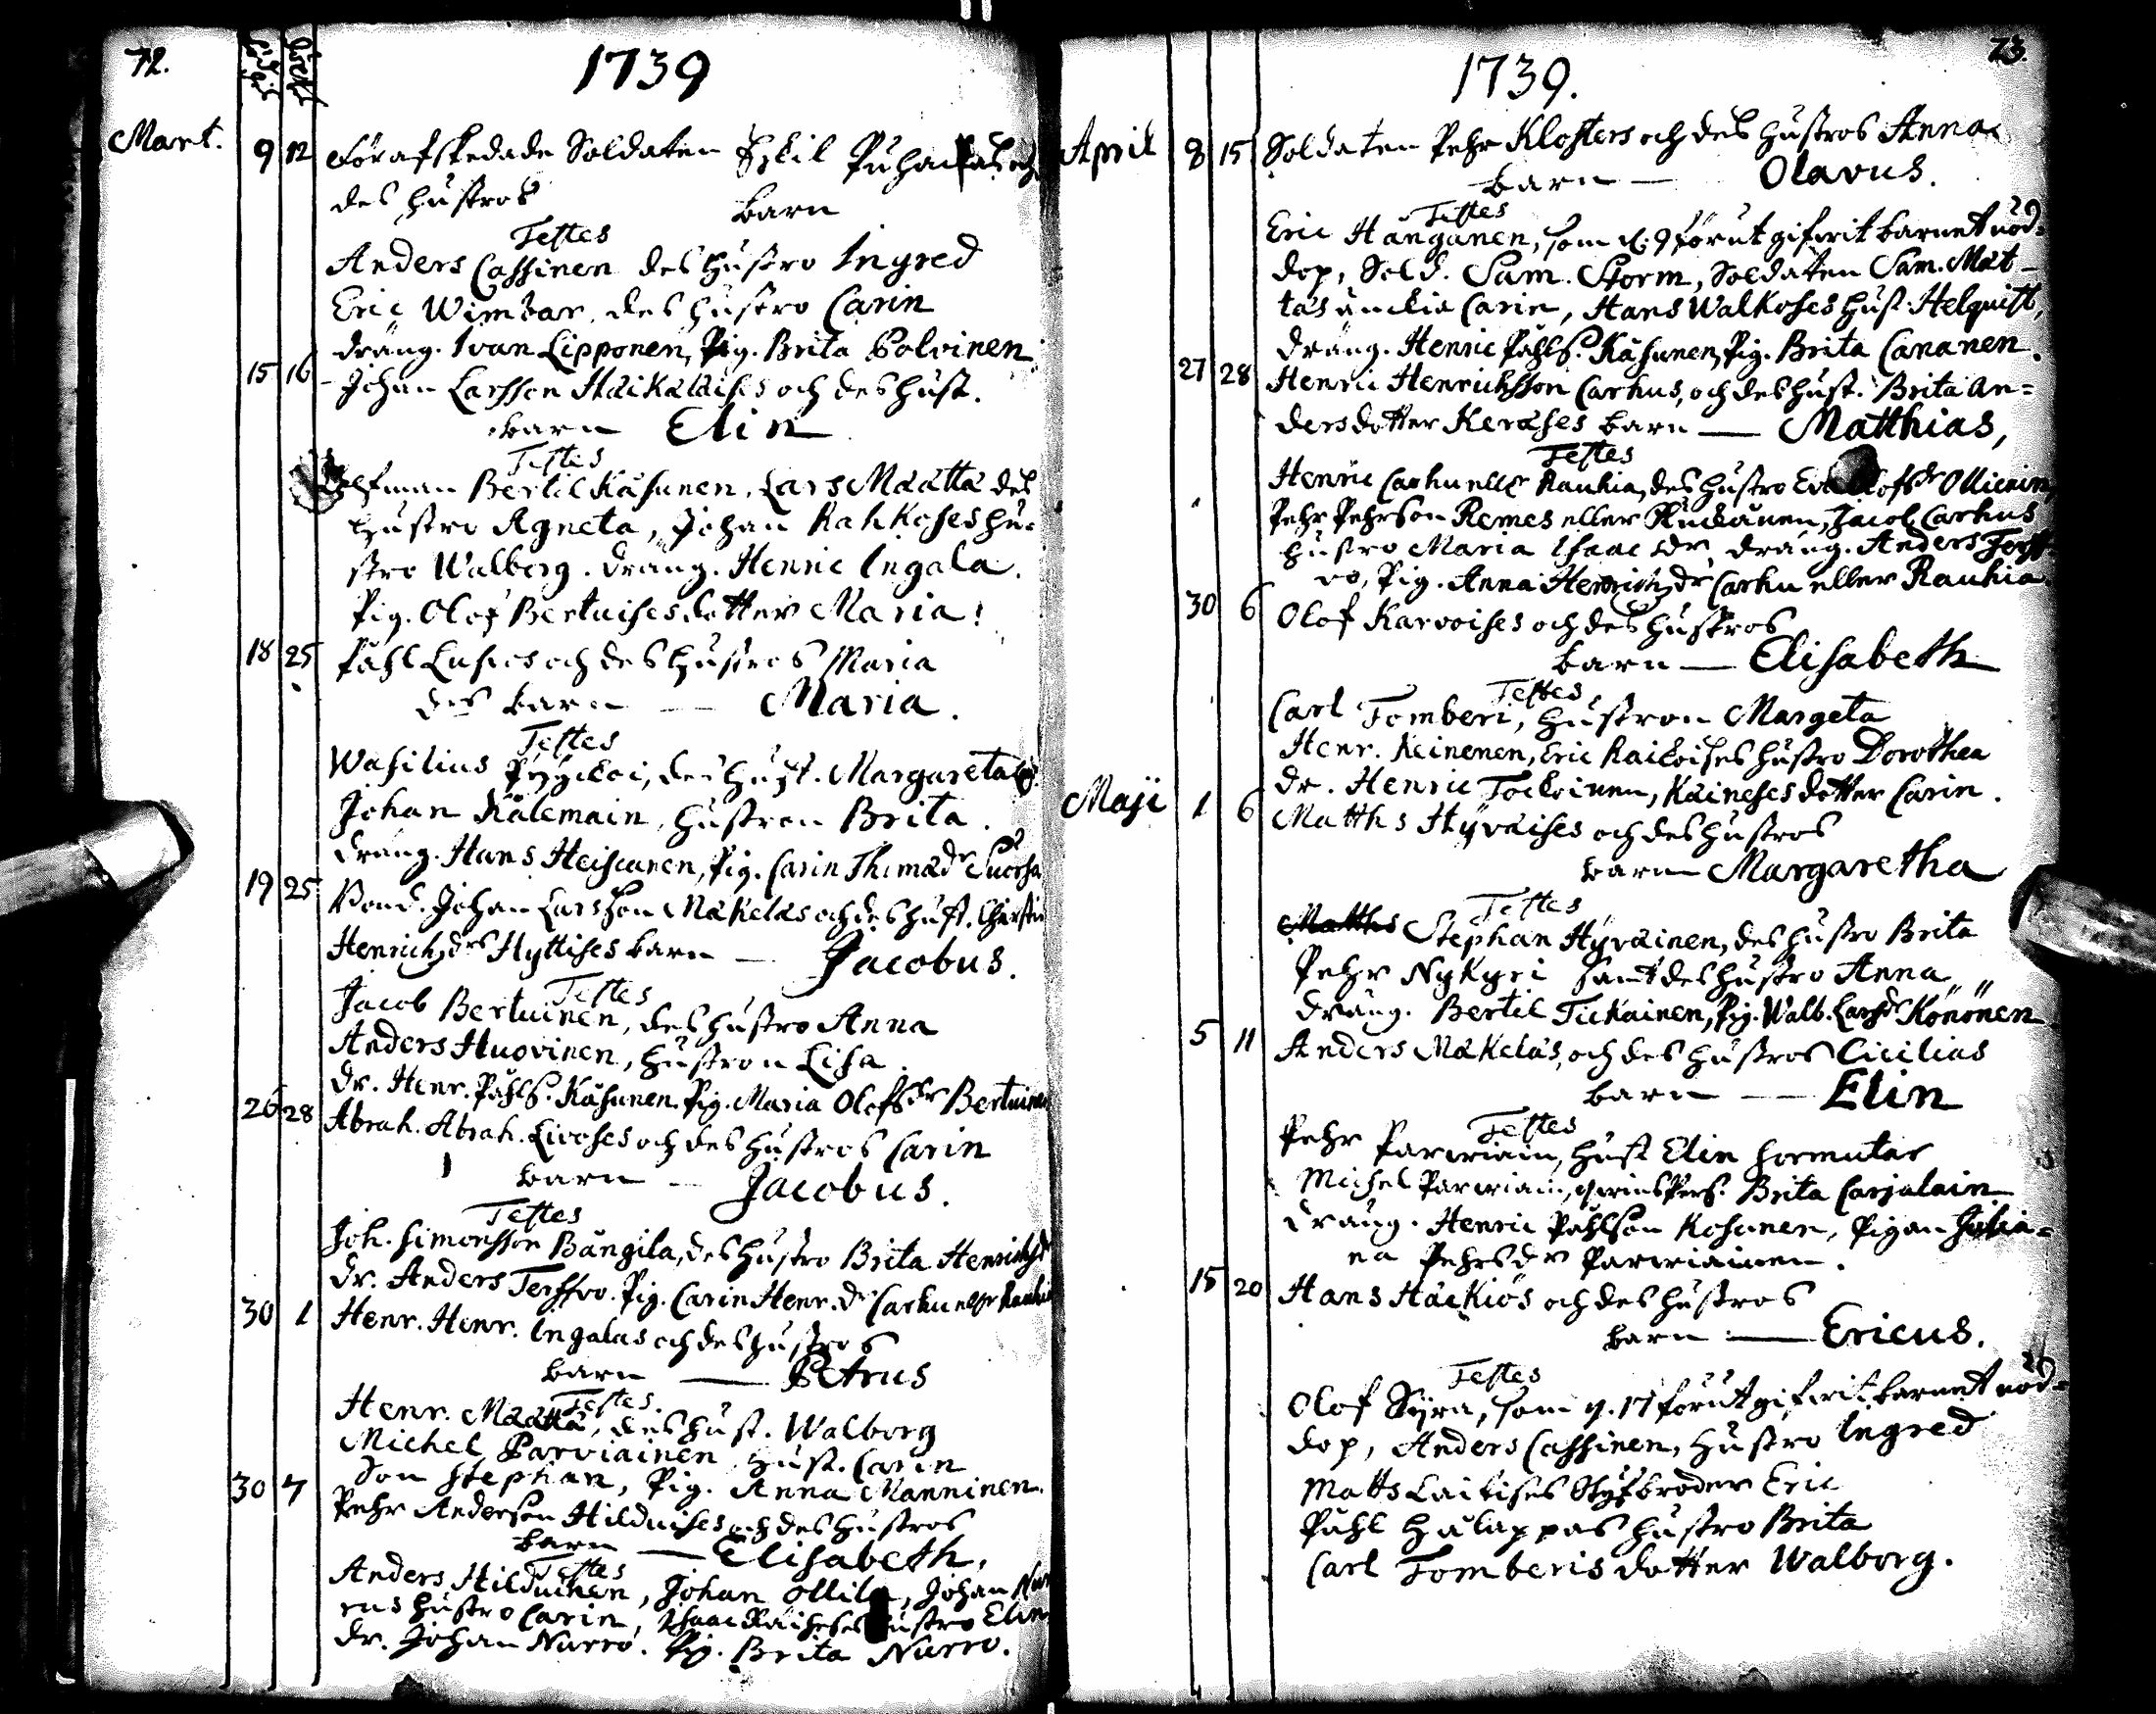 72.
1739
Mart. 9 12 för afskedade Soldaten Eskil
des hustros barn
Testes
Anders Cassinen des hustro Ingred
Eric Wimbar, des hustro Carin
dräng. Ivan Lipponen, Pig. Brita Polvinen
15 16 Johan Larsson Häikäläises och des hust.
barn Elin
Testes
Bertil Käsunen, Lars Määttä des
hustro Agneta, Johan Kahkoses hu-
stro Walborg. dräng. Henric Ingala.
Pig. Olof Bertuises dotter Maria
18 25 Påhl och des hustros Maria
des barn — Maria.
Testes
Wasilius des hust. Margareta
Johan Kälemain, hustron Brita.
dräng. Hans Heiscanen, Pig. Carin
19 25 Bond. Johan Larsson Mäkeläs och des hust.
Henrichdrs Hyttises barn — Jacobus.
Testes
Jacob Bertuinen, des hustro Anna
Anders Huovinen, hustron Lisa.
dr. Henr. Påhls. Käsunen. Pig. Maria Olofsdr Bertuinen
26 28 Abrah. Abrah. Livoses och des hustros Carin
barn — Jacobus.
Testes
Joh. Simonsson Bängila, des hustro Brita Henrichsdr
dr. Anders Terffvo. Pig. Carin Henr.dr Carhu ellr
30 1 Henr. Henr. Ingalas och des hustros
barn — Petrus
Testes.
Henr. Määttä, des hust. Walborg
Michel Parviainen, hust. Carin
Son Stephan, Pig. Anna Manninen.
30 7 Pehr Anderson Hilduises och des hustros
barn — Elisabeth.
Testes
Anders Hilduinen, Johan Ollila, Johan
hustro Carin, Isaac hustro Elin
dr. Johan Nurro. Pig. Brita Nurro.
73.
1739.
April 8 15 Soldaten Pehr Klosters och des hustros Anna
barn — Olavus.
Testes
Eric Hänganen, som d. 9 förut gifwit barnet nöd-
dop, Sold. Sam. Storm, Soldaten Sam. Mät-
täs änckia Carin, Hans Walkoses hust. Helquist,
dräng. Henric Påhls. Käsunen, Pig. Brita Cananen.
27 28 Henric Henrichsson Carhus, och des hust. Brita An-
dersdotter Keräses barn — Matthias,
Testes
Henric Carhu ellr Rauhia, des hustro
Pehr Pehrson Remes eller Jacob Carhus
hustro Maria Isaacsdr dräng. Anders Terff-
vo, Pig. Anna Henrichsdr Carhu eller Rauhia.
30 6 Olof Karvoises och des hustros
barn — Elisabeth
Testes
Carl Tomberi, hustron Margeta
Henr. Keinenen, Eric Raicoises hustro Dorothea
dr. Henric Tockoinen, Käineses dotter Carin.
Maji 1 6 Matths Hyväises och des hustros
barn Margaretha
Testes
Matths Stephan Hyväinen, des hustro Brita
Pehr Nykyri samt des hustro Anna
dräng. Bertil Tickainen, Pig. Walb. Larsdr Könönen
5 11 Anders Mäkeläs, och des hustros Cicilias
barn — Elin
Testes
Pehr Parwiain, hust Elin
Michel Parwiain, Brita Carjalain
dräng. Henric Påhlson Kosunen, Pigan Julia-
na Pehrsdr Parwiainen.
15 20 Hans Häckiös och des hustros
barn — Ericus.
Testes
Olof Syra, som d. 17 förut gifwit barnet nöd-
dop, Anders Cassinen, hustro Ingred
Matts Laitises Styfbroder Eric
Påhl Halappas hustro Brita
Carl Tomberis dotter Walborg.